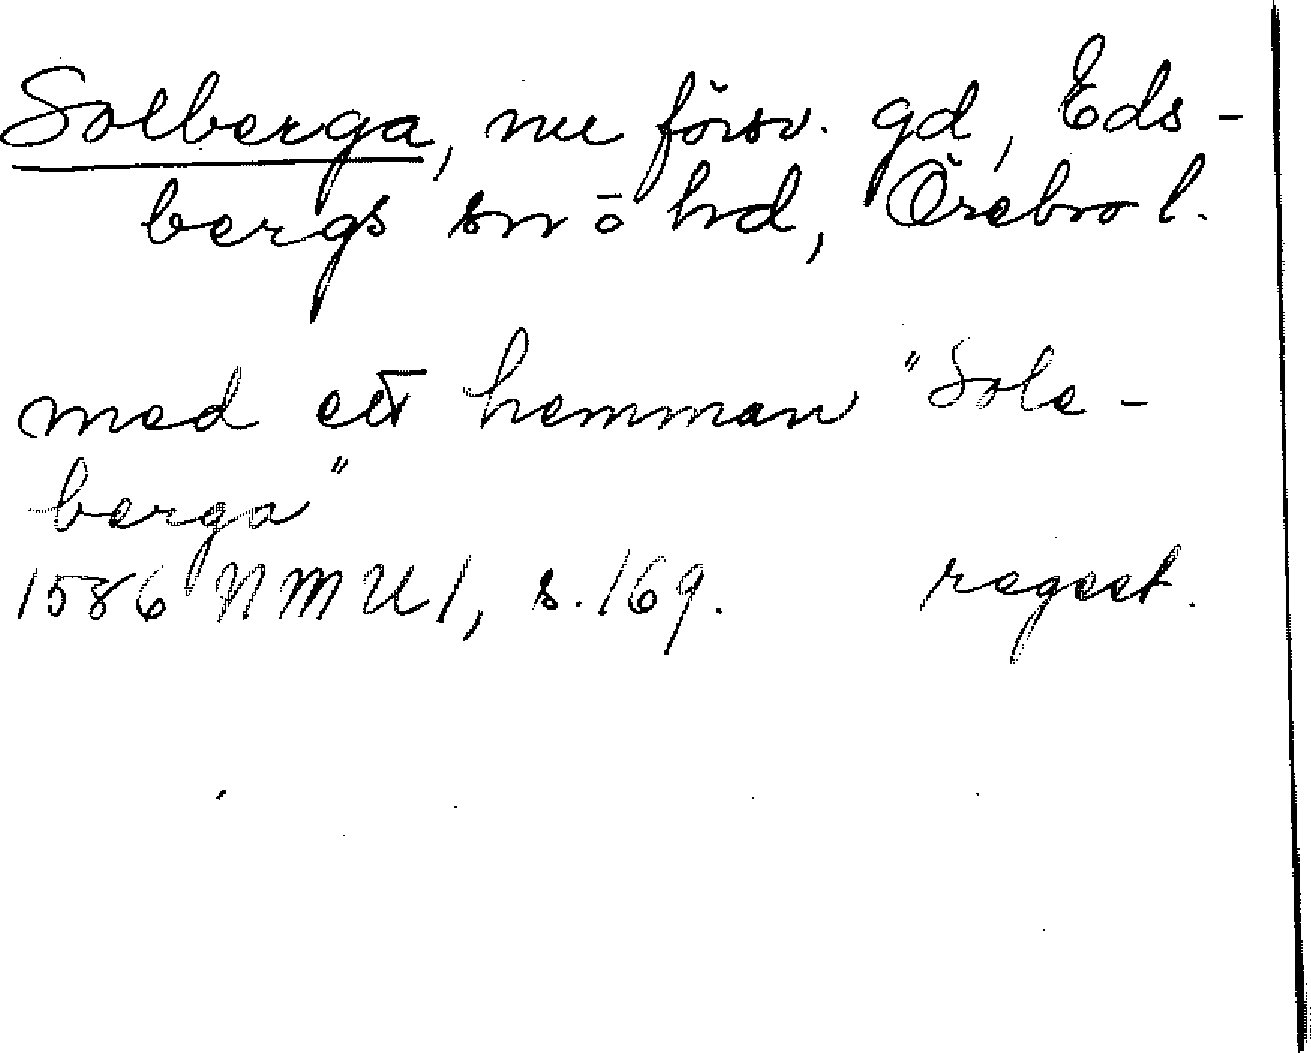 Solberga, nu försv. gd, Eds-
bergs sn o hd, Örebro l.
med ett hemman "Sole-
berga"
1586 NMU 1, s. 169. regest.